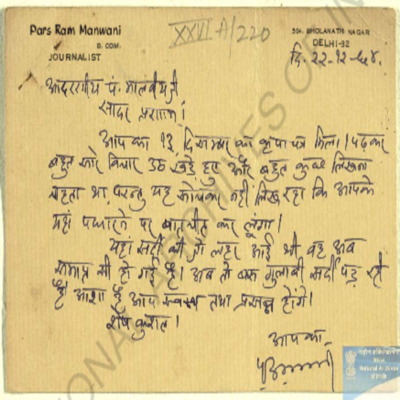 Pars Ram Manwani
B. COM.
JOURNALIST
XXVI A/220
BHOLANATH NAGAR
DELHI-32
दि. 22-12-
आदरणीय पं. मालवीयजी
सादर प्रणाम।
आपका 13 दिसम्बर का कृपा पत्र मिला। पढ़कर
बहुत सारे विचार उठ खड़े हुए और बहुत कुछ लिखना
चाहता था, परन्तु यह सोचकर नहीं लिख रहा कि आपके
यहां पधारने पर बातचीत कर लूंगा।
यहां सर्दी की जो लहर आई थी वह अब
समाप्त सी हो गई है। अब तो बस गुलाबी सर्दी पड़ रही
है। आशा है आप स्वस्थ तथा प्रसन्न होंगे।
शेष कुशल।
आपका